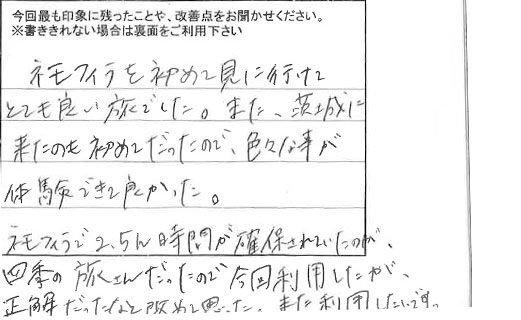 今回最も印象に残ったことや、改善点をお聞かせください。
※書ききれない場合は裏面をご利用下さい
ネモフィラを初めて見に行けて
とても良い旅でした。また、茨城に
来たのも初めてだったので、色々な事が
体験できて良かった。
ネモフィラで2.5h時間が確保されていたのが、
四季の旅さんだったので今回利用したが、
正解だったなと改めて思った。また利用したいです。